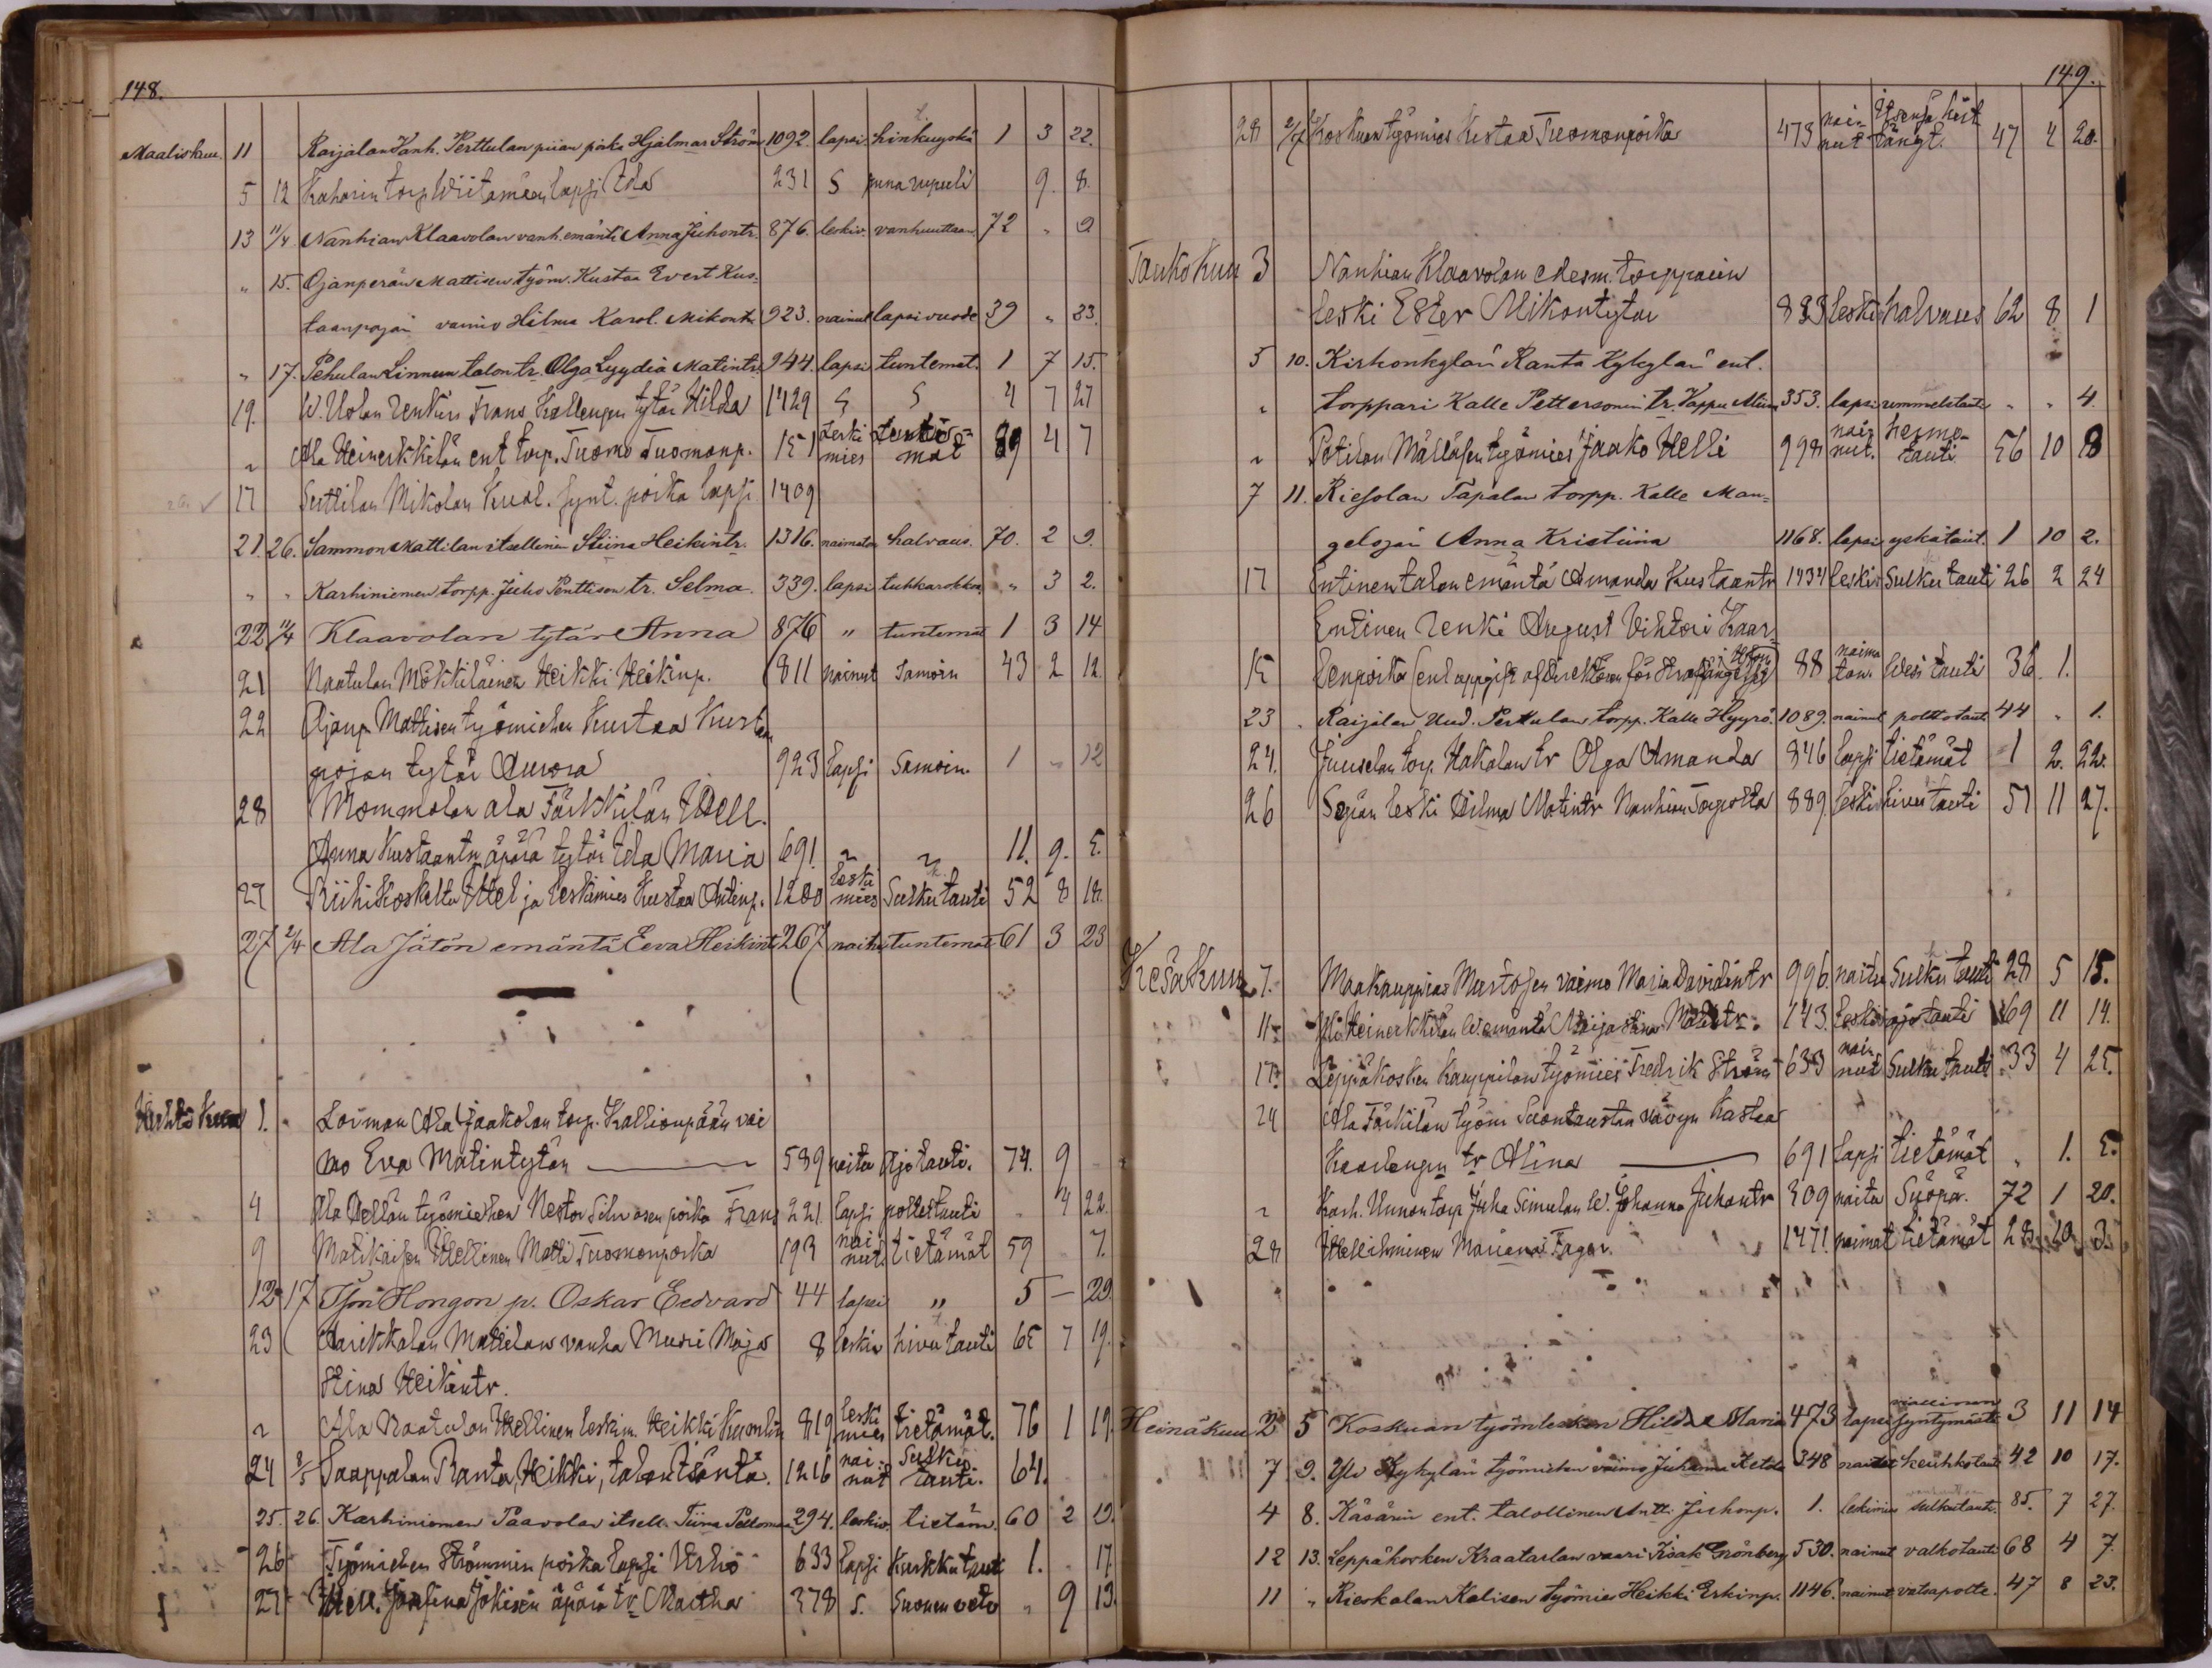 148.
Maaliskuu. 11 Raijalan Vanh. Perttulan piian poika Hjalmar Ström 1092. lapsi. hinkuyskä 1 3 22.
5 12 Kaharin torp. Wiitamäen lapsi Ida 231 S puna rupuli 9. 8.
13 11/4 Nanhian Klaavolan vanh. emäntä Anna Juhontr. 876. leskiv. vanhuuttaan 72 " 9
" 15. Ojanperän Mattisen työm. Kustaa Evert Kus-
taanpojan vaimo Hilma Karol. Mikontr. 923. nainut lapsivuode 39 " 23.
" 17. Pehulan Linnun talon tr. Olga Lyydia Matintr. 944. lapsi tuntemat. 1 7 15.
19. W. Uolan renkin Frans Kallenpn tytär Hilda 1429 S S 4 7 27
" Ala Heinerkkilän ent torp. Tuomo Tuomonp. 151 Leski mies tuntemat 89 4 7
17 Suttilan Mikolan Kual. synt. poika lapsi 1409
21. 26. Sammon Mattilan itsellinen Stiina Heikintr. 1316. naimaton halvaus. 70. 2 9.
" " Karhiniemen torpp. Juho Penttisen tr. Selma. 339. lapsi tuhkarokko " 3 2.
22 11/4 Klaavolan tytär Anna 876 " tuntemat 1 3 14
21 Naatulan Mökkiläinen Heikki Heikinp. 811 nainut Samoin 43 2 12.
22 Ojanp. Mattisen työmiehen Kustaa Kustaan
pojan tytär Aurora 923 lapsi Samoin. 1 " 12
28 Mommolan ala Färkkilän Itsell.
Anna Kustaantr äpärä tytär Ida Maria 691 " " 11. 9. 5.
27 Riihikoskelta Itsel ja leskimies Kustaa Antinp. 1200 leski mies Sulkutauti 52 8 18.
27 2/4 Ala Jätön emäntä Eeva Heikintr 267 naitu tuntemat 61 3 23
Huhtikuu 1. Loiman Ala Jaakolan torp. Kallionpään vai
mo Eva Matintytär 539 naitu Ajotauti. 74. 9
4 Ala Uellän työmiehen Nestor Silvosen poika Frans 221. lapsi polttotauti 4 22.
9 Matikaisen Itsellinen Matti Tuomonpoika 193 nai nut tietämät 59 7.
12 17 Ison Hongon p. Oskar Eedvard 44 lapsi " 5 — 29.
23 Karikkalan Mattilan vanha Muori Maja 8 leskiv hivutauti 65 7 19.
Stina Heikintr.
" Ala Naatulan Itsellinen leskim. Heikki Kuonlin 819 leski mies tietämät. 76 1 19.
24 8/5 Saappalan Ranta, Heikki, talon Isäntä. 1216 nai nut Sulku tauti. 64.
25. 26. Karhiniemen Paavolan itsell. Tiina Pelloman 294. leskiv. tietäm. 60 2 19.
26 Työmiehen Strömmin poika lapsi Urho 633 lapsi Kurkkutauti 1. 17
27 Itsell. Josefina Jokisen äpärä tr. Martha 378 S. Suonenveto " 9 13.
149.
28 2/7 Koskuan työmies Kustaa Tuomonpoika 473 nai nut Itsensä hirttänyt. 47 4 20.
Toukokuu 3 Nanhian Klaavolan Mesm. torpparin
leski Ester Mikontytär 883 leski halvaus 62 8 1
5 10. Kirkonkylän Ranta Kylylän ent.
" torppari Kalle Pettersonin tr. Vappu Alina 353. lapsi rummelstauti " " 4.
" Potilan Mällösen työmies Jaako Helli 998 nai nut. heimotauti 56 10 8
7 11. Riesolan Tapalan torpp. Kalle Man-
gelojan Anna Kristiina 1168. lapsi yskätaut. 1 10 2.
17 Entinen talon emäntä Amanda Kustaantr 1434 leskiv Sulkutauti 26 2 24
Entinen renki August Vihtori Kaar-
15 lenpoika (enl uppgift af Direktören för Straffängelset i Hfors) 88 naima ton. Wesitauti 36. 1.
23 Raijalan Uud. Perttulan torpp. Kalle Hyyrö. 1089. nainut polttotaut. 44 " 1.
24. Juuselan torp. Hakalan tr Olga Amanda 846 lapsi tietämät 1 2. 22.
26 Sepän leski Hilma Matintr Nanhian Torpolta 889. leskiv hivutauti 51 11 27.
Kesäkuu 7. Maakauppias Mustosen vaimo Maria Davidintr 996. naitu Sulkutauti 28 5 15.
11 Yli Heinerkkilän W. emäntä Maija Stina Matintr. 143. leskiv ajotauti 69 11 14.
17. Leppäkosken Kauppilan työmies Fredrik Ström 633 nai nut Sulkutauti 33 4 25.
24 Ala Färkilän työm Suontaustaa vävyn Kustaa
Kaarlenpn tr Alina 691 lapsi tietämät " 1. 5.
" Karh. Unnon torp Juha Simulan W. Johanna Juhontr 309 naitu Syöpä. 72 1 20.
28 Itsellisnainen Mariana Fager. 1471. naimat tietämät 28. 10. 3.
Heinäkuu 2 5 Koskuan työm lesken Hilda Maria 473 lapsi viallinen syntymästä 3 11 14
7 9. Yli Kylylän työmiehen vaimo Juhanna Ketola 348 naitu keuhkotauti 42 10 17.
4 8. Käsärin ent. talollinen Antti Juhonp. 1. leskimies sulkutauti. 85. 7 27.
12 13. Leppäkosken Kraatarlan vaari Isak Grönberg 530. nainut valkotauti 68 4 7.
11 " Kieskalan Kalisen työmies Heikki Erkinp. 1146. nainut vatsapolte. 47 8 23.